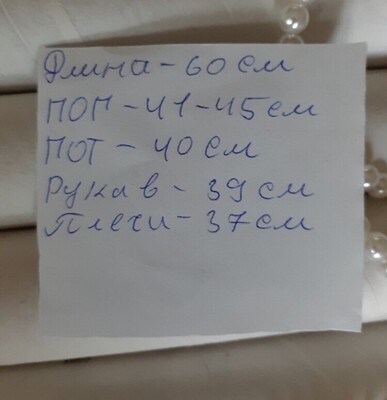 Длина - 60 см
ПОГ - 41-45 см
ПОТ - 40 см
Рукав - 39 см
Плечи - 37 см